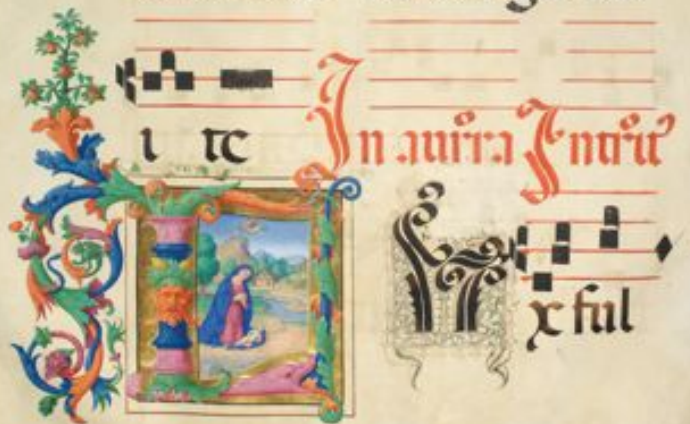 i te
In aurora Introit
Lux ful